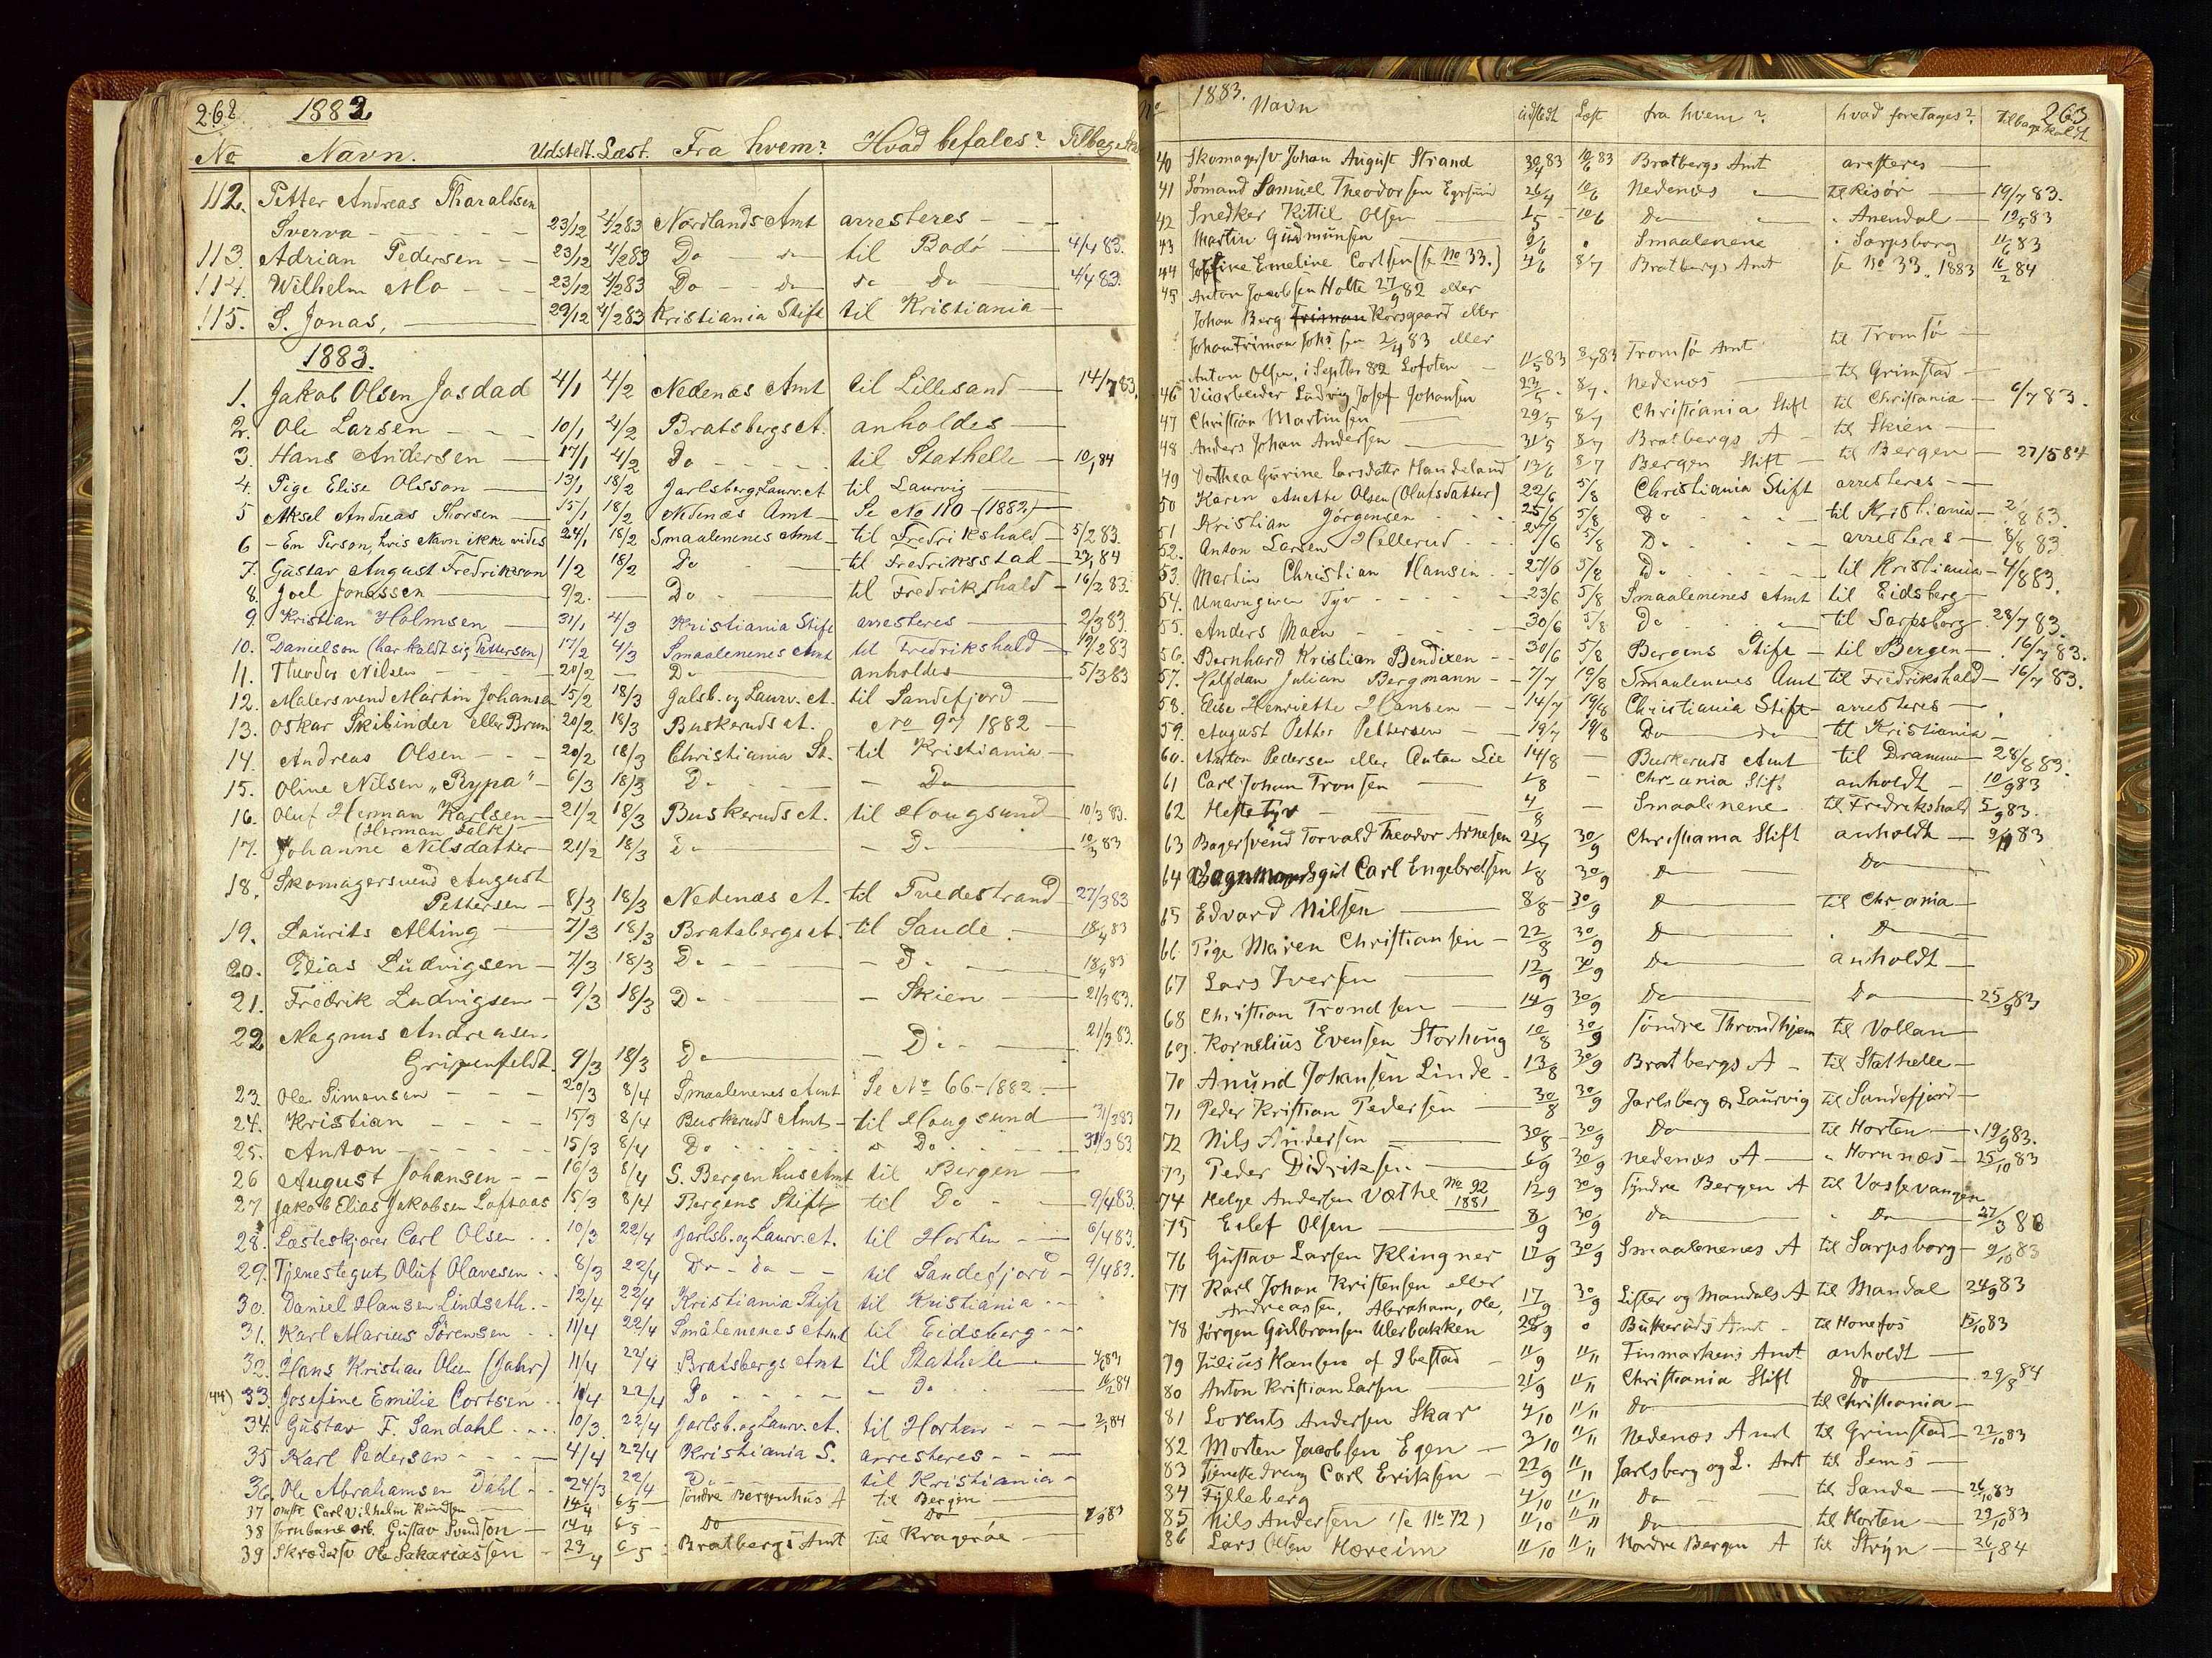 262 1882
No Navn. Udstedt. Læst. Fra hvem? Hvad befales?
112. Petter Andreas Tharaldsen
Sverva - 23/12 4/2 83 Nordlands Amt arresteres - -
113. Adrian Pedersen - - 23/12 4/2 83 Do - do til Bodø - 4/4 83.
114. Wilhelm Mo - - - 23/12 4/2 83 Do - do do Do - 4/4 83.
115. S. Jonas, - 29/12 4/2 83 Kristiania Stift til Kristiania -
1883.
1. Jakob Olsen Josdad 4/1 4/2 Nedenæs Amt til Lillesand - 14/7 83.
2. Ole Larsen - - - 10/1 4/2 Bratsbergs A. anholdes -
3. Hans Andersen - 17/1 4/2 Do - - - til Stathelle - 10/1 84
4. Pige Elise Olsson - 13/1 18/2 Jarlsberg, Laurv. A til Laurvig -
5 Aksel Andreas Thorsen - 15/1 18/2 Nedenæs Amt - Se No 110 - (1882) -
6 - En Person, hvis Navn ikke vides 24/1 18/2 Smaalenenes Amt - til Fredrikshald - 5/2 83.
7. Gustav August Fredrikson 1/2 18/2 Do - til Fredriksstad - 84
8. Joel Jonassen - 9/2. - Do - - til Fredrikshald - 16/2 83.
9. Kristian Holmsen - 31/1 4/3 Kristiania Stift arresteres - 2/3 83.
10. Danielson (har kaldt sig Petterson) 17/2 4/3 Smaalenenes Amt til Fredrikshald - 19/2 83
11. Theodor Nilsen - - - 20/2 - Do - anholdes - 5/3 83
12. Malersvend Martin Johansen 15/2 18/3 Jalsb. og Laurv. A. til Sandefjord -
13. Oskar Skibinder eller Brun 20/2 18/3 Buskeruds A. No 97 1882 -
14. Andreas Olsen - - - 20/2 18/3 Christiania St. til Kristiania -
15. Oline Nilsen "Rypa" - 6/3 18/3 Do - - - Do -
16. Oluf Herman Karlsen - 21/2 18/3 Buskeruds A. til Hougsund - 10/3 83.
(Herman Falk)
17. Johanne Nilsdatter - 21/2 18/3 Do - - Do - 10/3 83
18. Skomagersvend August
Pettersen - 8/3 18/3 Nedenæs A. til Tvedestrand - 27/3 83
19. Laurits Alting - 7/3 18/3 Bratsbergs A. til Sande - 18/4 83
20. Elias Ludvigsen - 7/3 18/3 Do - - Do - 18/4 83
21. Fredrik Ludvigsen - 9/3 18/3 Do - - Skien - 21/3 83.
22 Magnus Andreasen
Gripenfeldt. 9/3 18/3 Do - - Do - - 21/3 83.
23. Ole Simensen - - - 20/3 8/4 Smaalenenes Amt Se No 66 - 1882. -
24. Kristian - - - - 15/3 8/4 Buskeruds Amt - til Hougsund - 31/3 83
25. Anton - - - - - 15/3 8/4 Do - - - " Do - - - 31/3 83
26 August Johansen - - 16/3 8/4 S. Bergenhus Amt til Bergen -
27 Jakob Elias Jakobsen Loftaas 15/3 8/4 Bergens Stift til Do - - 9/4 83.
28. Læsteskjører Carl Olsen - - 10/3 22/4 Jarlsb. og Laurv. A. til Horten - - 6/4 83.
29. Tjenestegut Oluf Olavesen - - 8/3 22/4 Do - do - - til Sandefjord - 9/4 83.
30. Daniel Hansen Lindseth. - 12/4 22/4 Kristiania Stift til Kristiania - -
31. Karl Marius Sørensen - - 11/4 22/4 Smålenenes Amt til Eidsberg - -
32. Hans Kristian Olsen (Jahr) 11/4 22/4 Bratsbergs Amt til Stathelle -
44) 33. Josefine Emilie Cortsen - - 11/4 22/4 Do - - - - - Do - 16/2 84
34. Gustav F. Sandahl - - - 10/3. 22/4 Jarlsb. og Laurv. A. til Horten - - - 84
35 Karl Pedersen - - - - 4/4 22/4 Kristiania S. arresteres - - -
36. Ole Abrahamsen Dahl - - 24/3 22/4 Do - - til Kristiania -
37 omstr. Carl Vilhelm Knudsen 14/4 6/5 - Søndre Bergenhus A til Bergen -
38 Jernbane arb. Gustav Svendson - 14/4 6/5 - Do - Do - 83
39 Skrædersv Ole Sakariassen - 23/4 6/5 - Bratbergs Amt til Kragerøe -
No 1883. Navn Udstedt Læst fra hvem? hvad foretages? Tilbagekaldt 263
40 Skomagersv Johan August Strand 30/4 83 10/6 83 Bratbergs Amt aresteres -
41 Sømand Samuel Theodorsen Egersund 26/4 10/6 Nedenæs - til Risør - 19/7 83.
42 Snedker Kittil Olsen - 1/5 - 10/6 Do " Arendal - 83
43 Martin Gudmunsen - 6/6 " Smaalenene " Sarpsborg 11/6 83
44 Josefine Emeline Cortsen (se No 33.) 4/6 8/7 Bratbergs Amt se No 33. 1883 16/2 84
45 Anton Jacobsen Holte 27/9 82 eller
Johan Berg Korsgaard eller
Johan Friman Johs: sen 2/4 83 eller
Anton Olsen, i Septbr 82 Lofoten - 11/5 83 8/7 83 Tromsø Amt til Tromsø -
46 Viiarbeider Ludvig Josef Johansen 23/5 - 8/7 - Nedenæs - til Grimstad -
47 Christian Martinsen - 29/5 8/7 Christiania Stift til Christiania - 6/7 83.
48 Anders Johan Andersen - 31/5 8/7 Bratbergs A - til Skien -
49 Dorthea Gurine Larsdatter Handeland 13/6 8/7 Bergen Stift - til Bergen - 27/5 84
50 Karen Anette Olsen (Olufsdatter) 22/6 5/8 Christiania Stift arresteres - -
51 Kristian Jørgensen - - - 25/6 5/8 Do - - - til Kristiania - 2/8 83.
52. Anton Larsen Hellerud - - - 5/8 Do - - - arresteres - 8/8 83
53. Martin Christian Hansen - - 27/6 5/8 Do - - - til Kristiania - 4/8 83.
54. Unavngiven Tyv - - - - 23/6 5/8 Smaalenenes Amt til Eidsberg -
55. Anders Moen - - - - 30/6 5/8 Do - - til Sarpsborg 28/7 83.
56. Bernhard Kristian Bendixen - - 30/6 5/8 Bergens Stift - til Bergen - 16/7 83.
57. Halfdan Julian Bergmann - - 7/7 19/8 Smaalenenes Amt til Fredrikshald - 16/7 83.
58. Elise Henriette Hansen - - 14/7 19/8 Christiania Stift - arresteres -
59. August Petter Pettersen - - 19/7 19/8 Do - do til Kristiania -
60. Anton Pedersen eller Anton Lie 14/8 - Buskeruds Amt til Drammen - 28/8 83.
61 Carl Johan Tronsen - 1/8 - Chr-ania Stift anholdt - 10/9 83
62 Heste tyv - 4/8 - Smaalenene til Fredrikshald 5/9 83.
63 Bagersvend Torvald Theodor Arnesen 21/7 30/9 Christiania Stift anholdt - 83
64 Carl Engebretsen 1/8 30/9 Do - Do -
65 Edvard Nilsen - 8/8 - 30/9 Do - til Chr ania -
66 Pige Maren Christiansen - 22/8 30/9 Do - " Do -
67 Lars Iversen - 12/9 30/9 Do - anholdt -
68 Christian Trondsen - 14/9 30/9 Do - Do - 25/9 83
69. Kornelius Evensen Storhoug 10/8 30/9 Søndre Throndhjem til Vollan -
70 Anund Johansen Linde - 13/8 30/9 Bratbergs A - til Stathelle -
71 Peder Kristian Pedersen - 30/8 30/9 Jarlsberg & Laurvig til Sandefjord -
72 Nils Andersen - 30/8 - 30/9 Do - til Horten - 19/9 83.
73 Peder Didriksen - 6/9 30/9 Nedenæs A - " Hornnæs - 25/10 83
74 Helge Andersen Væthe No 92 1881 12/9 30/9 Syndre Bergen A til Vossevangen
75 Eilef Olsen - 8/9 30/9 Do - " Do - 27/3
76 Gustav Larsen Klingner 17/9 30/9 Smaalenenes A til Sarpsborg - 9/10 83
77 Karl Johan Kristensen eller
Andreassen, Abraham, Ole, 17/9 30/9 Lister og Mandals A til Mandal 24/9 83
78 Jørgen Gulbransen Ulerbakken " Buskeruds Amt - til Hønefos 15/10 83
79 Julius Hansen af Ibestad - 11/9 11/11 Finmarkens Amt anholdt -
80 Anton Kristian Larsen - 21/9 11/11 Christiania Stift do - 84
81 Lorents Andersen Skar 4/10 11/11 Do - til Christiania -
82 Morten Jacobsen Egen - 3/10 11/11 Nedenæs Amt til Grimstad - 22/10 83
83 Tjenestedreng Carl Eriksen - 22/9 11/11 Jarlsberg og L. Amt til Sems -
84 Fylleberg 4/10 11/11 Do - - til Sande - 26/10 83
85 Nils Andersen (se No 72) 11/10 11/11 Do - til Horten - 29/10 83
86 Lars Olsen Horeim 11/10 11/11 Nordre Bergen A til Stryn - 26/1 84